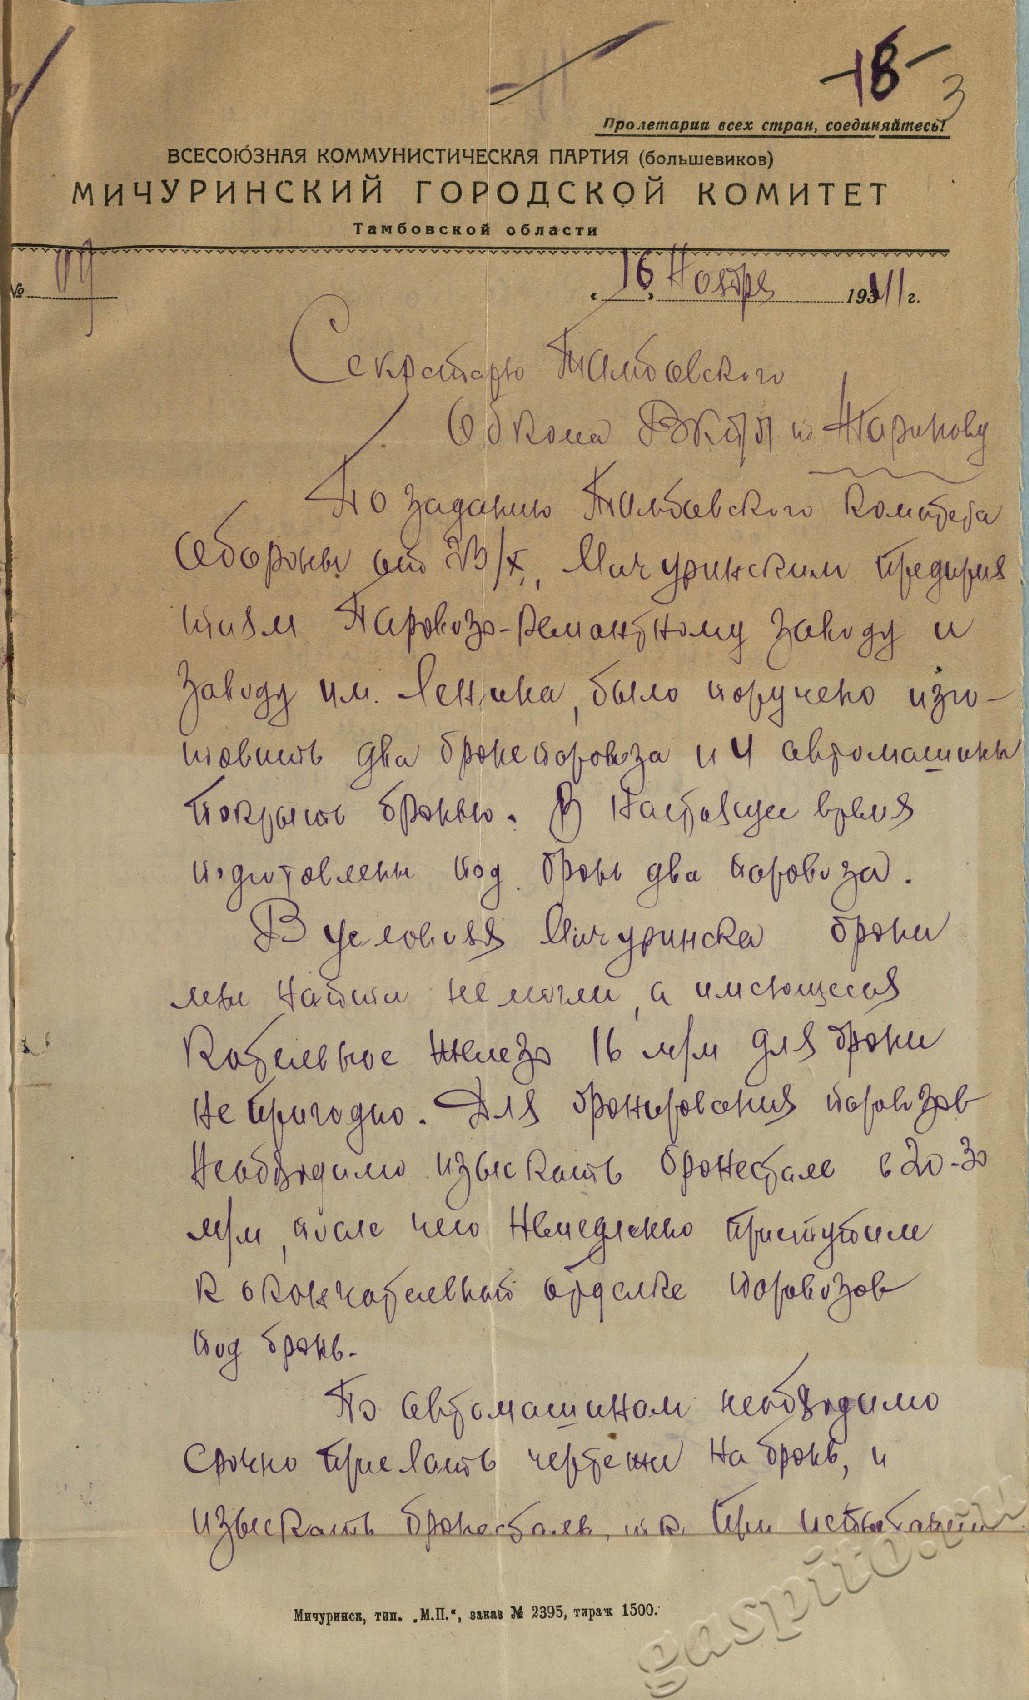 18
3
Пролетарии всех стран, соединяйтесь!
ВСЕСОЮЗНАЯ КОММУНИСТИЧЕСКАЯ ПАРТИЯ (большевиков)
МИЧУРИНСКИЙ ГОРОДСКОЙ КОМИТЕТ
Тамбовской области
№
„16„ Ноября 1941 г.
Секретарю Тамбовского
Обкома ВКП/б/ т.
По заданию Тамбовского Комитета
Обороны от /X, Мичуринским предприя
тиям Паровозо-Ремонтному заводу и
заводу им. Ленина, было поручено изго-
товить два бронепаровоза и 4 автомашины
покрыть бронью. В настоящее время
подготовлены под бронь два паровоза.
В условиях Мичуринска брони
мы найти не могли, а имеющееся
Котельное железо 16 м/м для брони
не пригодно. Для бронирования паровозов
необходимо изыскать бронестали в 20-30
м/м, после чего немедленно приступим
к окончательной отделке паровозов
под бронь.
По автомашинам необходимо
срочно прислать чертежи на бронь, и
изыскать бронесталь, т.к. при испытании
Мичуринск, тип. „М.П.“, заказ № 2395, тираж 1500.
gaspito.ru